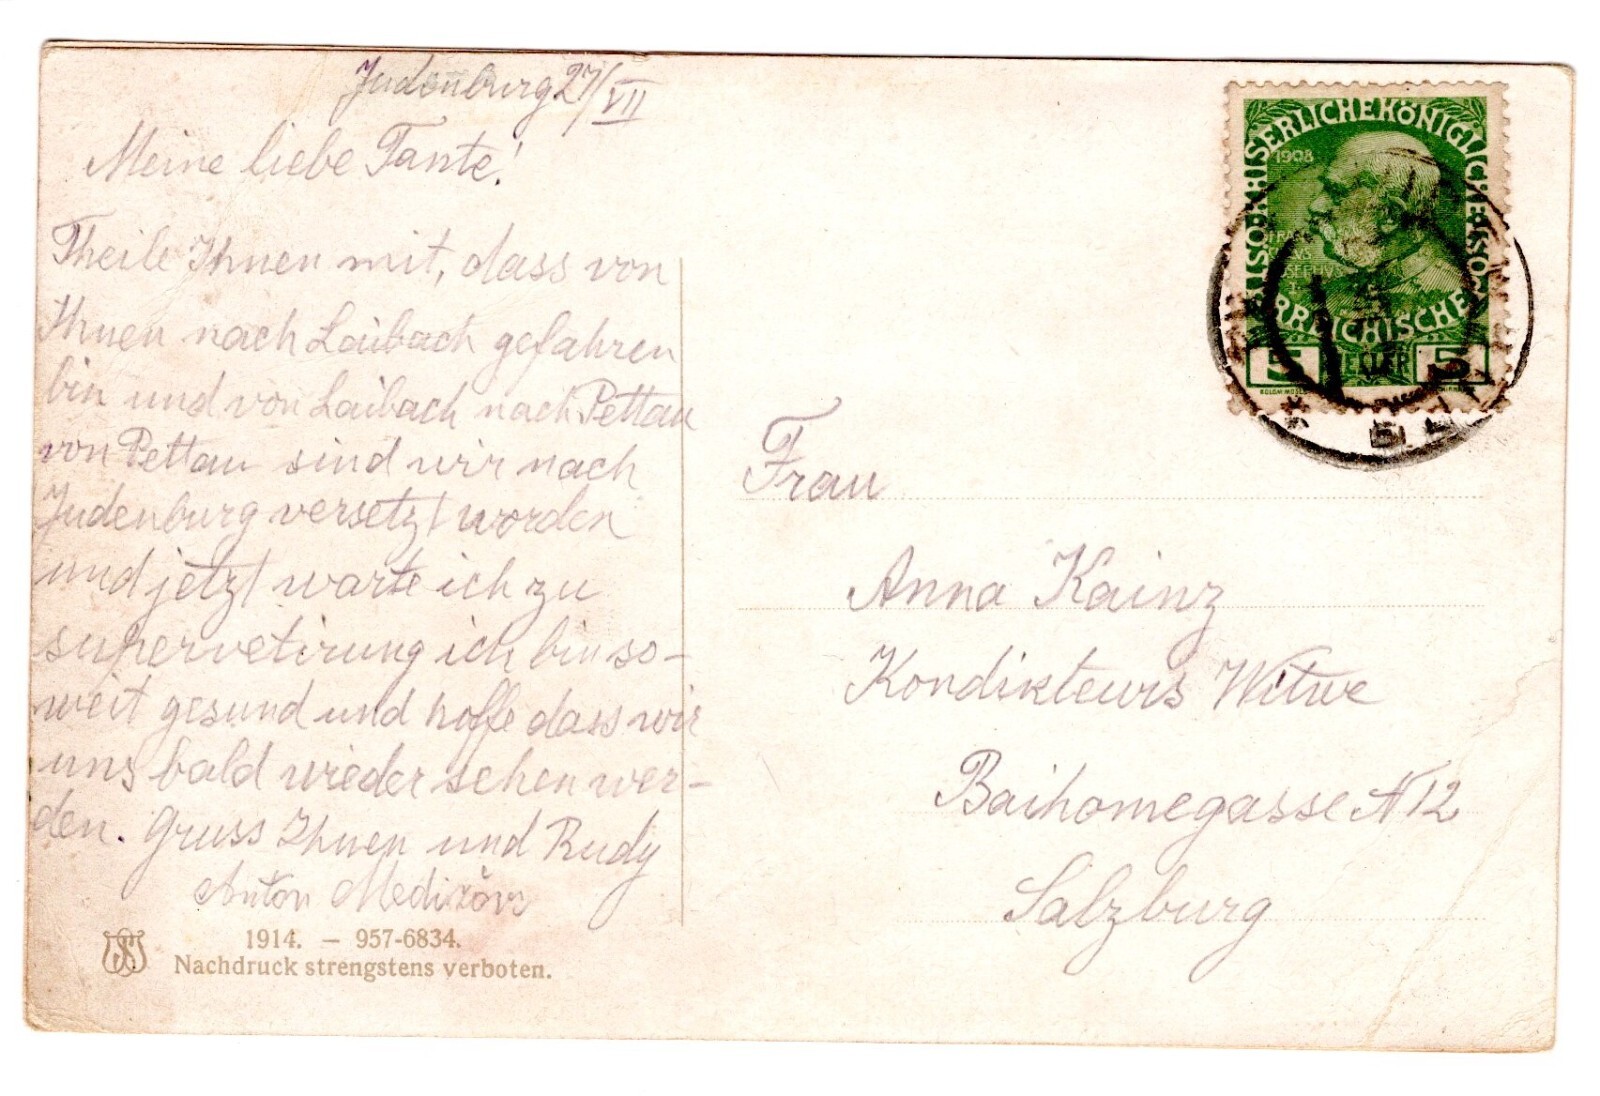 Judenburg 27/VII
Meine liebe Tante!
Theile Ihnen mit, dass von
Ihnen nach Laibach gefahren
bin und von Laibach nach Pettau
von Pettau sind wir nach
Judenburg versetzt worden
und jetzt warte ich zu
supervetirung ich bin so-
weit gesund und hoffe dass wir
uns bald wieder sehen wer-
den. Gruss Ihnen und Rudy
Anton
1914. – 957-6834.
Nachdruck strengstens verboten.
KAISERLICHE KÖNIGLICHE ÖSTERREICHISCHE POST
1908
5 HELLER 5
Frau
Anna Kainz
Kondikteurs Witwe
Baihomegasse N 12
Salzburg